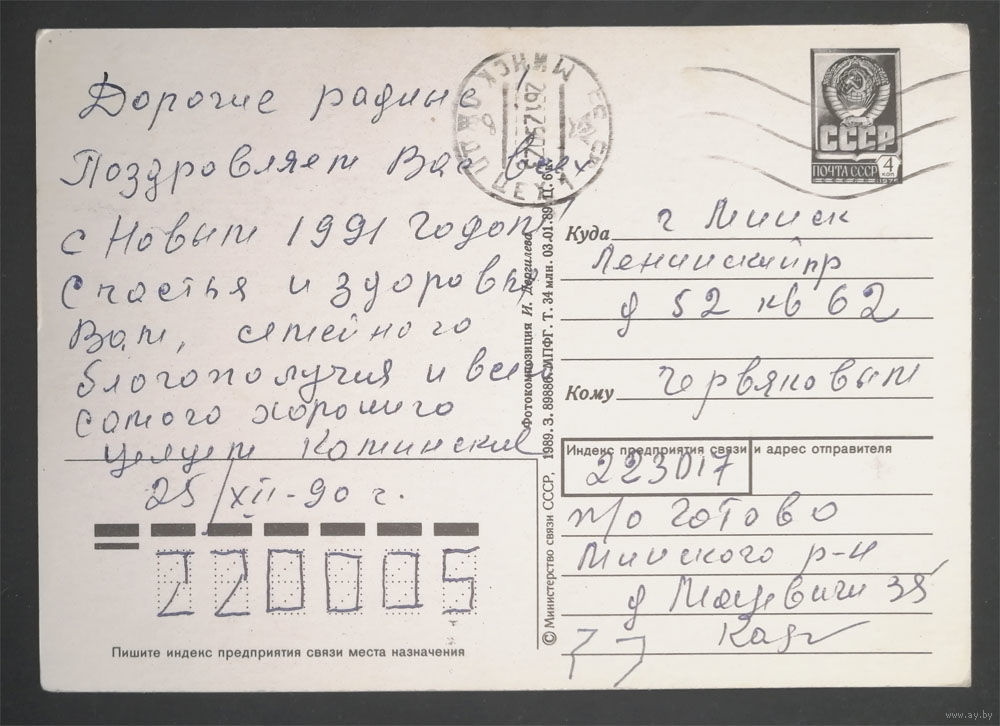 Дорогие радные
Поздровляем Вас всех
с Новым 1991 годом
Счастья и здоровья
Вам, семейного
благополучия и всего
самого хорошиго
целуем Каминские
25/XII-90 г.
220005
Пишите индекс предприятия связи места назначения
МИНСК
© Министерство связи СССР, 1989. З. 89886. МПФГ. Т. 34 млн. 03.01.89. Ц. 6 к.
Фотокомпозиция И. Дергилева
СССР
ПОЧТА СССР
4
КОП
Куда г Минск
Ленинский пр
д 52 кв 62
Кому Червяковым
Индекс предприятия связи и адрес отправителя
223017
п/о Готово
Минского р-н
д Мацевичи 35
www.ay.by